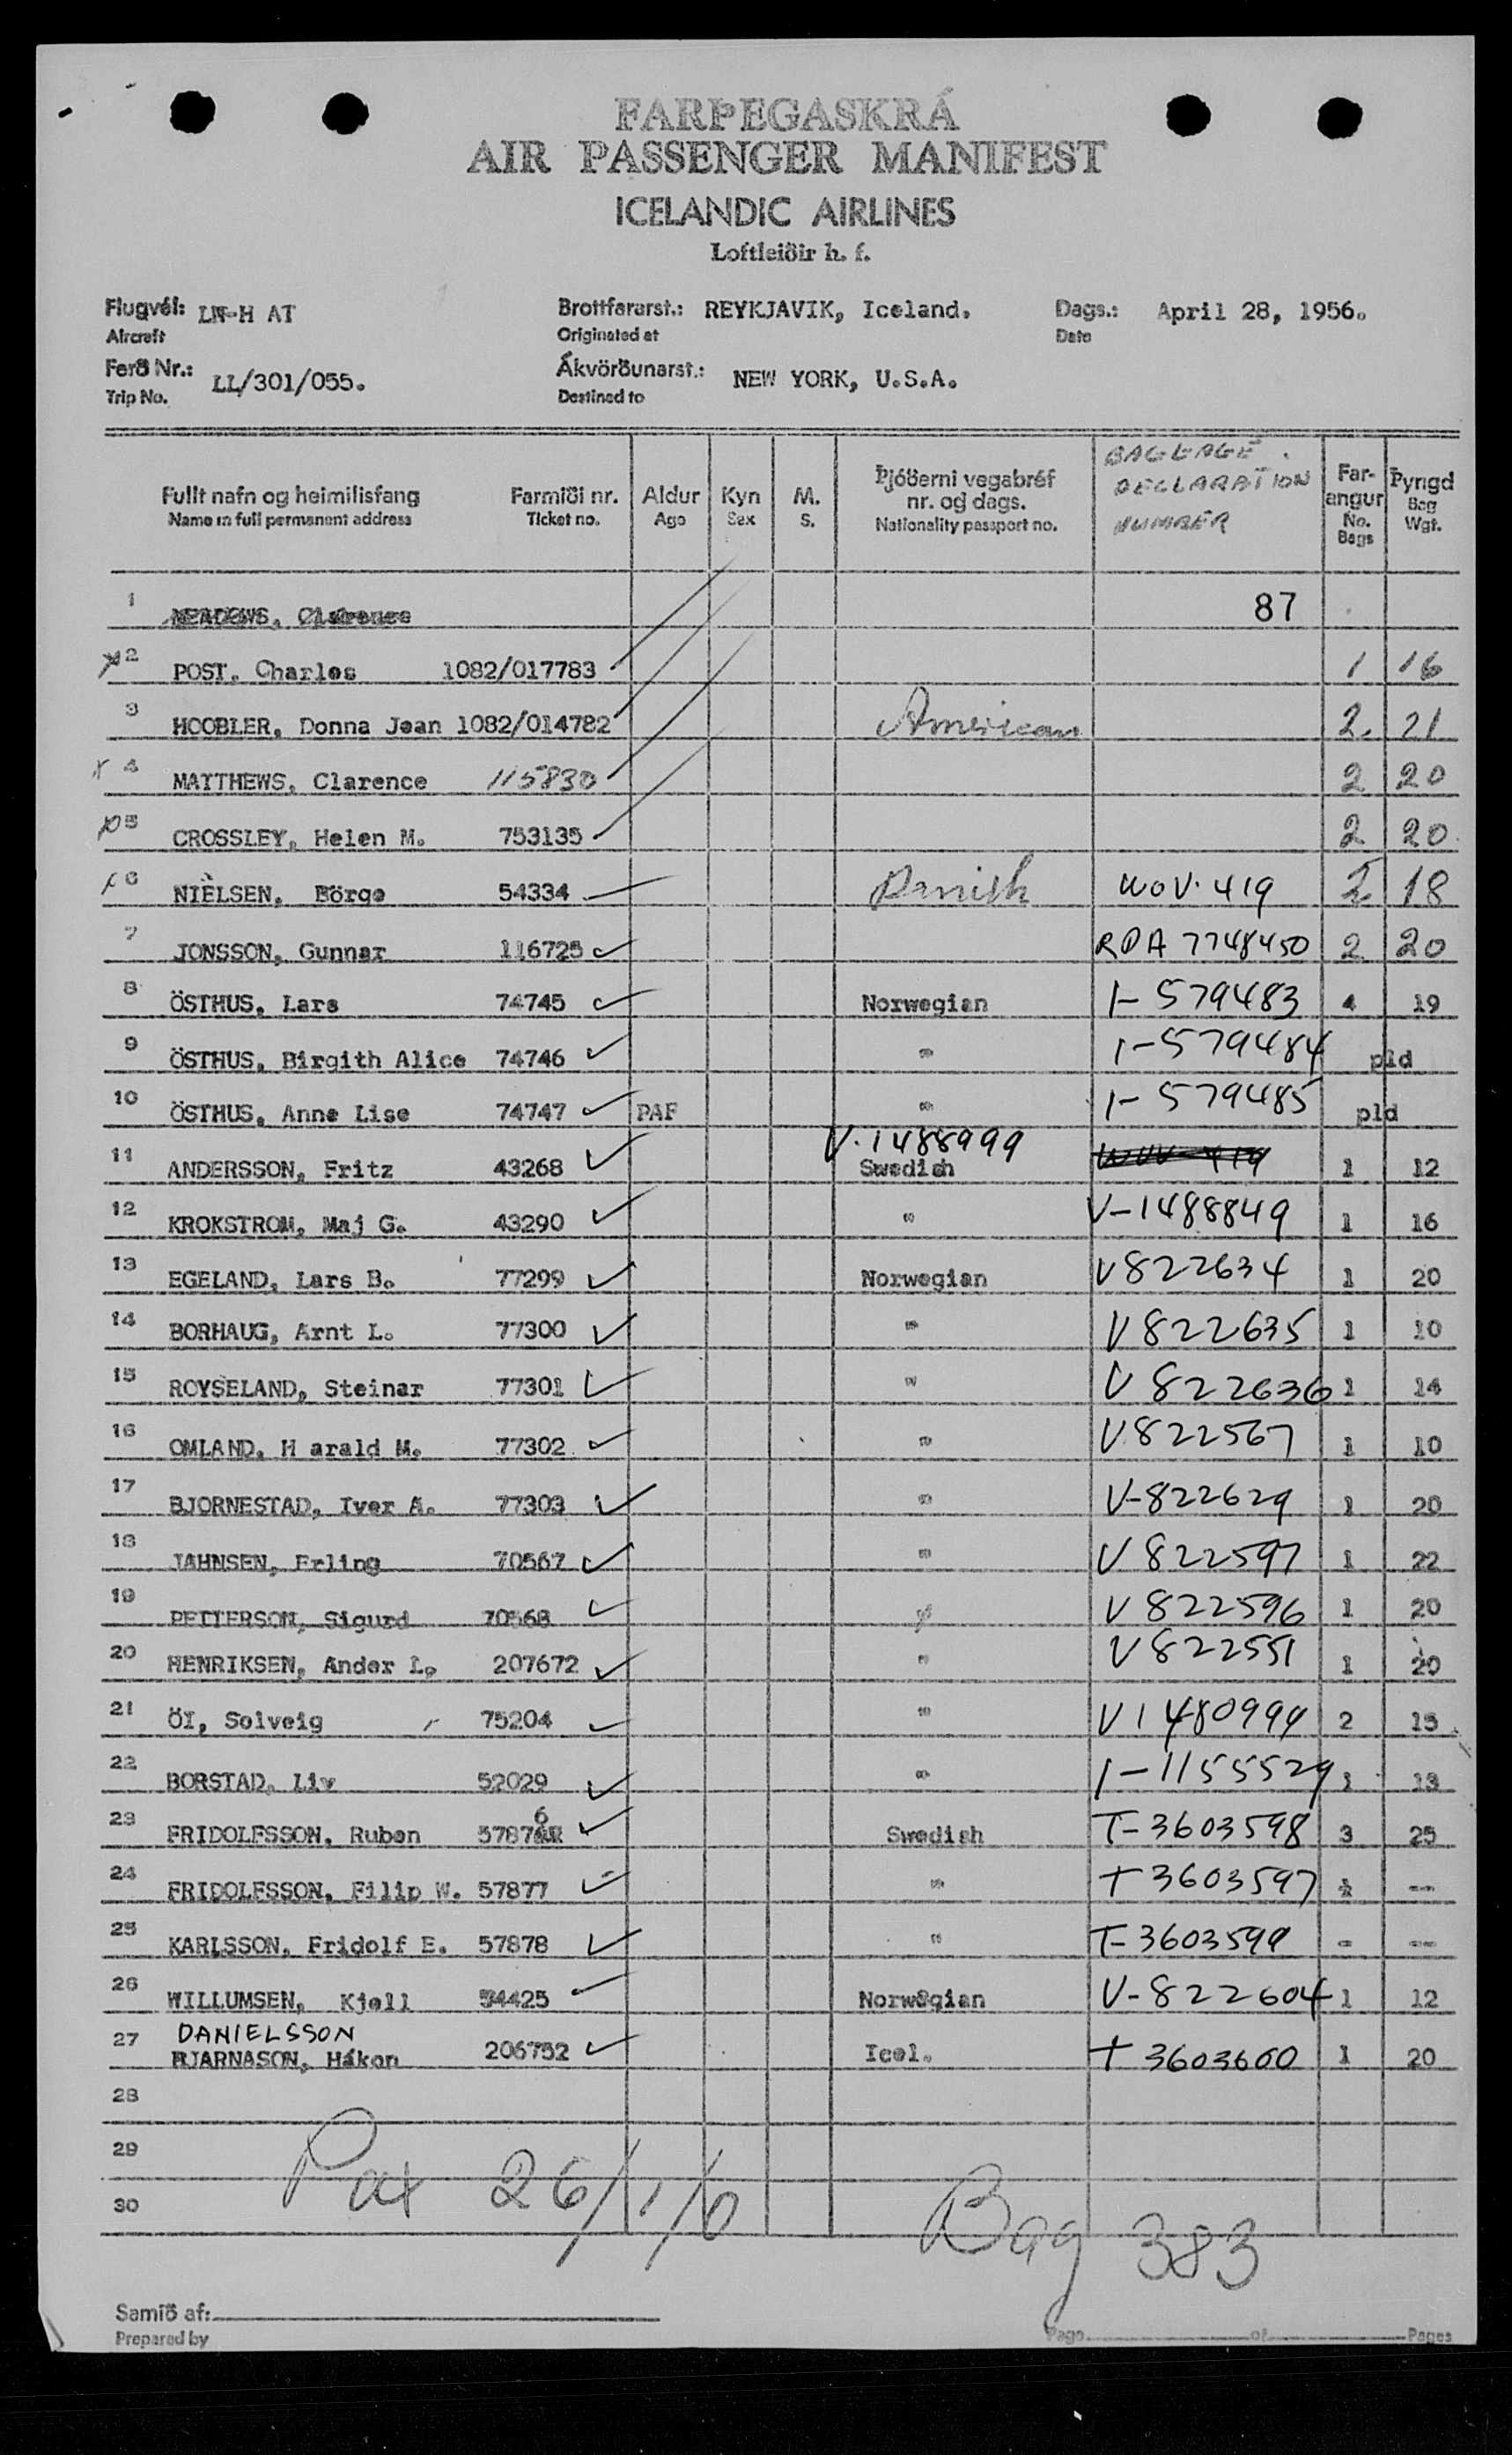 FARÞEGASKRÁ
AIR PASSENGER MANIFEST
ICELANDIC AIRLINES
Loftleiðir h. f.
Flugvél: LN-H AT Brottfararst.: REYKJAVIK, Iceland. Dags.: April 28, 1956.
Aircraft Originated at Date
Ferð Nr.: LL/301/055. Ákvörðunarst.: NEW YORK, U.S.A.
Trip No. Destined to
BAGGAGE
DECLARATION
NUMBER
Fullt nafn og heimilisfang Farmiði nr. Aldur Kyn M. Þjóðerni vegabréf nr. og dags. Far-angur Þyngd
Name in full permanent address Ticket no. Age Sex S. Nationality passport no. No. Bags Bag Wgt.
1 MEADOWS, Clarence 87
2 POST, Charles 1082/017783 1 16
3 HOOBLER, Donna Jean 1082/014782 American 2 21
4 MATTHEWS, Clarence 115830 2 20
5 CROSSLEY, Helen M. 753135 2 20
6 NIELSEN, Börge 54334 Danish WOV. 419 2 18
7 JONSSON, Gunnar 116725 RDA 7748450 2 20
8 ÖSTHUS, Lars 74745 Norwegian I- 579483 4 19
9 ÖSTHUS, Birgith Alice 74746 " I-579484 pld
10 ÖSTHUS, Anne Lise 74747 PAF " I- 579485 pld
V.1488999
11 ANDERSSON, Fritz 43268 Swedish WOV-419 1 12
12 KROKSTROM, Maj G. 43290 " V-1488849 1 16
13 EGELAND, Lars B. 77299 Norwegian V822634 1 20
14 BORHAUG, Arnt L. 77300 " V 822635 1 10
15 ROYSELAND, Steinar 77301 " V 822636 1 14
16 OMLAND, H arald M. 77302 " V.822567 1 10
17 BJORNESTAD, Iver A. 77303 " V-822629 1 20
18 JAHNSEN, Erling 70567 " V 822597 1 22
19 PETTERSON, Sigurd 70568 " V 822596 1 20
20 HENRIKSEN, Ander L. 207672 " V 822551 1 20
21 ÖI, Solveig 75204 " V1480999 2 15
22 BORSTAD, Liv 52029 " I-1155529 1 13
23 FRIDOLFSSON, Ruben 57876 Swedish T-3603598 3 25
24 FRIDOLFSSON, Filip W. 57877 " T 3603597 --
25 KARLSSON, Fridolf E. 57878 " T-3603599 - --
26 WILLUMSEN, Kjell 54425 Norwegian V-822604 1 12
DANIELSSON
27 BJARNASON, Hákon 206752 Icel. T 3603600 1 20
28
29
30
Pax 26/1/0 Bag 383
Samið af:
Prepared by Page of Pages